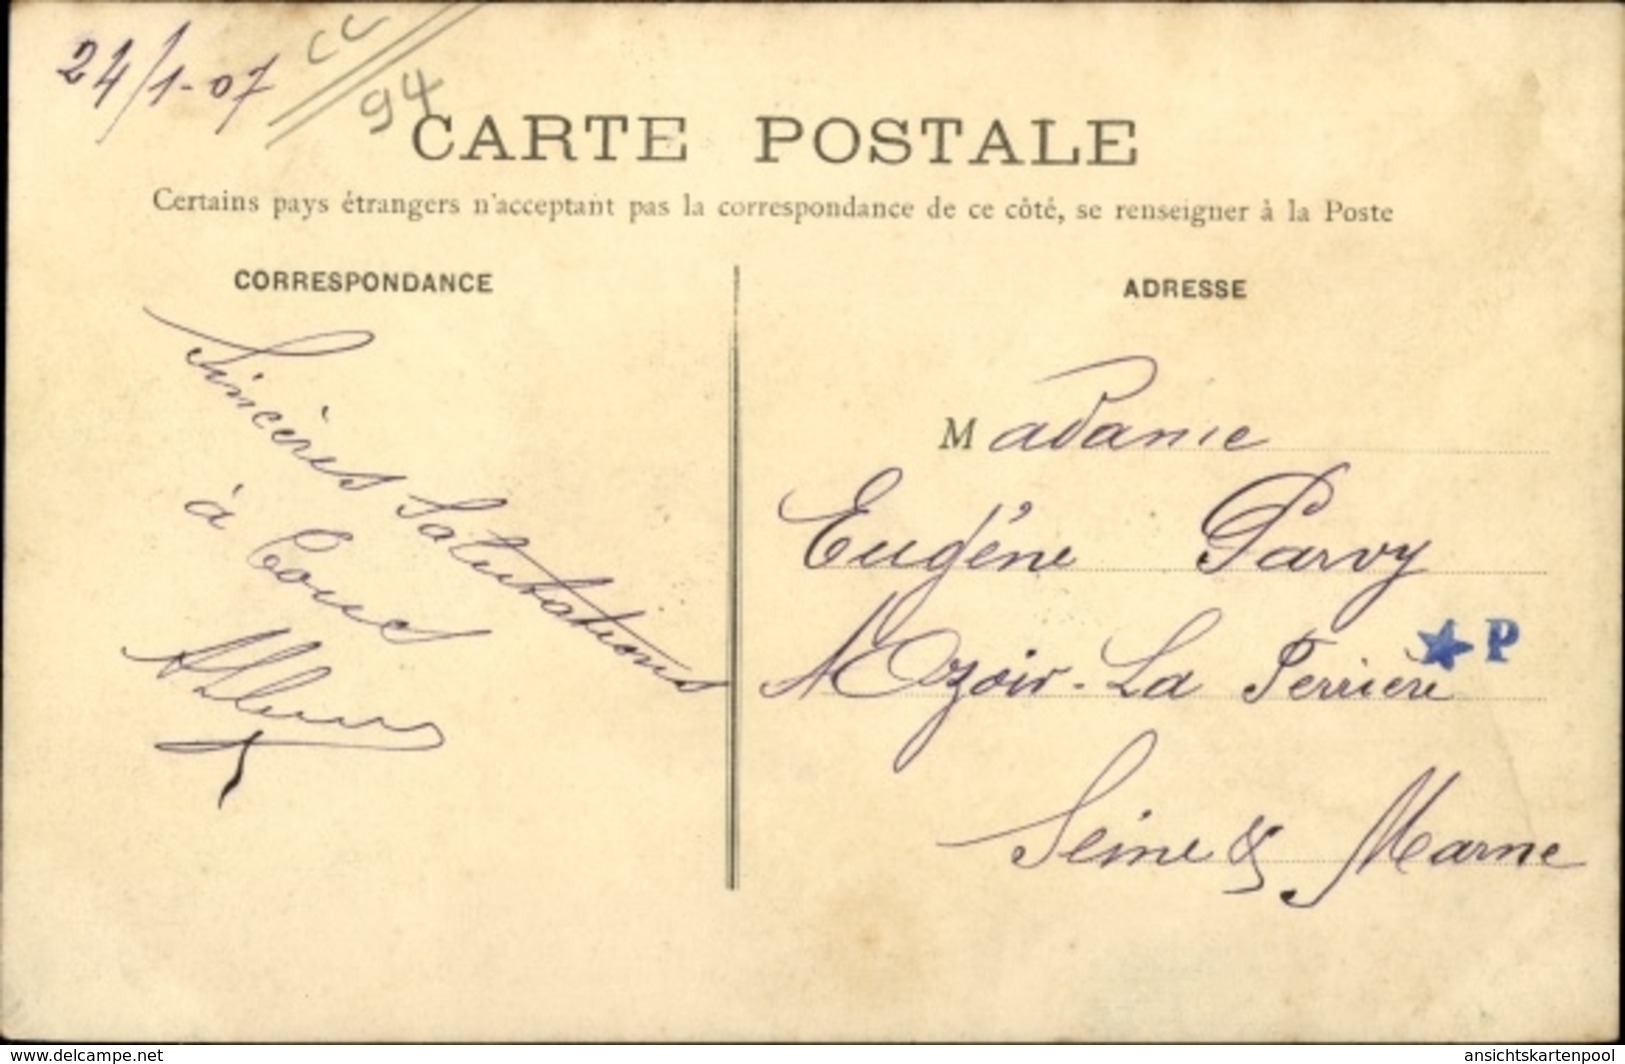 24/1-07
CC
94
CARTE POSTALE
Certains pays étrangers n'acceptant pas la correspondance de ce côté, se renseigner à la Poste
CORRESPONDANCE
Sincères Salutations
à Tous
ADRESSE
Madame
Eugène Parvy
Ozoir-La Ferrière
★P
Seine & Marne
www.delcampe.net
ansichtskartenpool